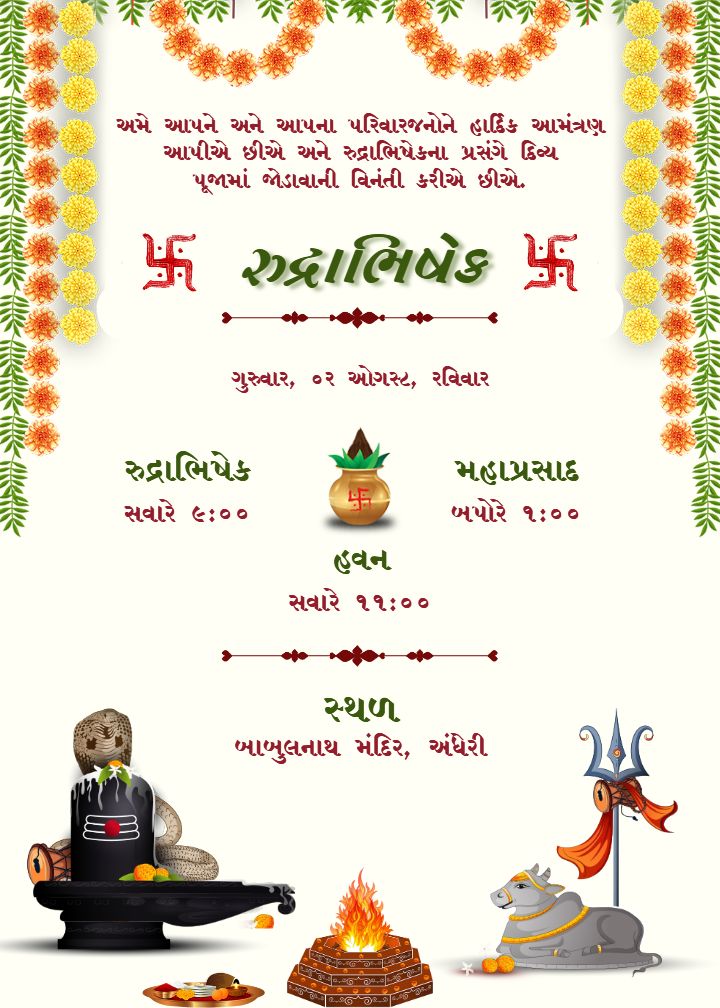 અમે આપને અને આપના પરિવારજનોને હાર્દિક આમંત્રણ
આપીએ છીએ અને રુદ્રાભિષેકના પ્રસંગે દિવ્ય
પૂજામાં જોડાવાની વિનંતી કરીએ છીએ.
રુદ્રાભિષેક
ગુરુવાર, ૦૨ ઓગસ્ટ, રવિવાર
રુદ્રાભિષેક
સવારે ૯:૦૦
મહાપ્રસાદ
બપોરે ૧:૦૦
હવન
સવારે ૧૧:૦૦
સ્થળ
બાબુલનાથ મંદિર, અંધેરી